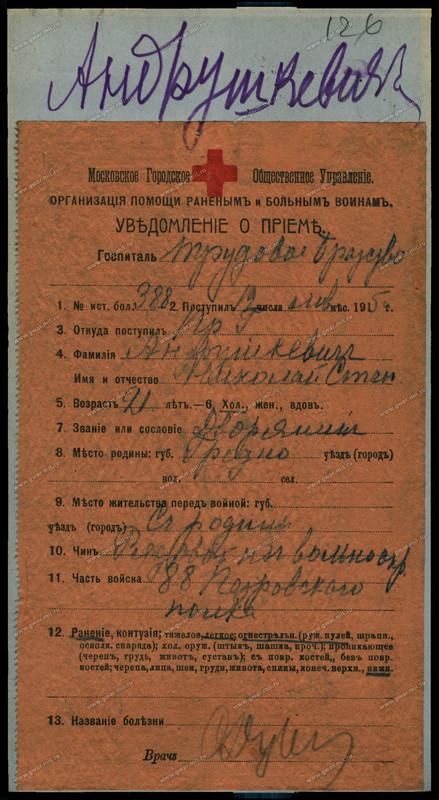 126
Андрушкевичъ
Московское Городское Общественное Управленіе.
ОРГАНИЗАЦІЯ ПОМОЩИ РАНЕНЫМЪ и БОЛЬНЫМЪ ВОИНАМЪ.
УВѢДОМЛЕНІЕ О ПРІЕМѢ.
Госпиталь Трудовое братство
1. № ист. бол. 388 2. Поступилъ 3 числа мѣс. 1915 г.
3. Откуда поступилъ
4. Фамилія Андрушкевичъ
Имя и отчество Николай Степ
5. Возрастъ 21 лѣтъ.—6. Хол., жен., вдов.
7. Званіе или сословіе Дворянин
8. Мѣсто родины: губ. Гродно уѣздъ (городъ)
вол. сел.
9. Мѣсто жительства передъ войной: губ.
уѣздъ (городъ) С родины
10. Чинъ
11. Часть войска 88 Петровского
полка
12. Раненіе, контузія; тяжелое, легкое; огнестрѣльн. (руж. пулей, шрапн.,
осколк. снаряда); хол. оруж. (штыкъ, шашка, проч.); проникающее
(черепъ, грудь, животъ, суставъ); съ повр. костей, безъ повр.
костей; черепа, лица, шеи, груди, живота, спины, конеч. верхн., нижн.
13. Названіе болѣзни
Врачъ